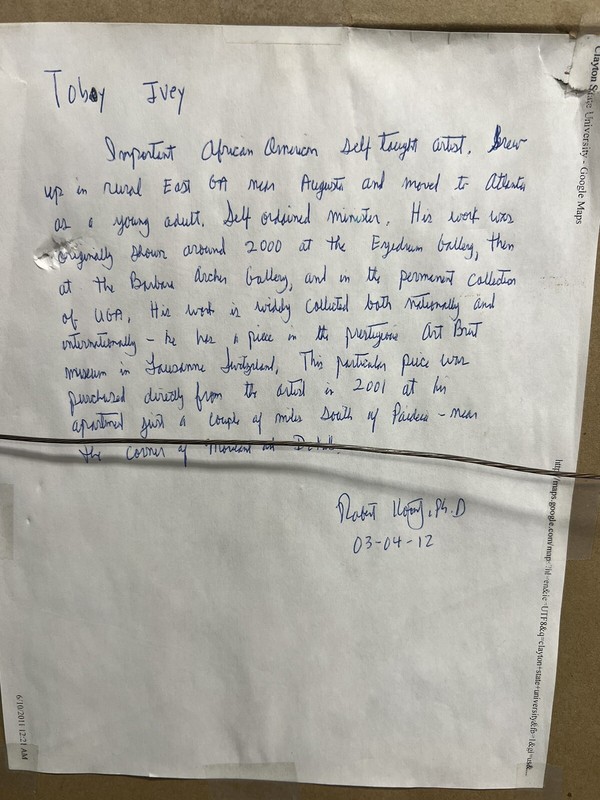 Toby Ivey
Important African American self taught artist. Grew
up in rural East GA near Augusta and moved to Atlanta
as a young adult. Self ordained minister. His work was
originally shown around 2000 at the Eyedrum Gallery, then
at the Barbara Archer Gallery, and in the permanent collection
of UGA. His work is widely collected both nationally and
internationally - he has a piece in the prestigious Art Brut
museum in Lausanne Switzerland. This particular piece was
purchased directly from the artist in 2001 at his
apartment just a couple of miles south of Paideia - near
the corner of Moreland
Robert
, Ph.D
03-04-12
Clayton State University - Google Maps
http://maps.google.com/maps?hl=en&ie=UTF8&q=clayton+state+university&fb=1&gl=us&...
6/10/2011 12:21 AM